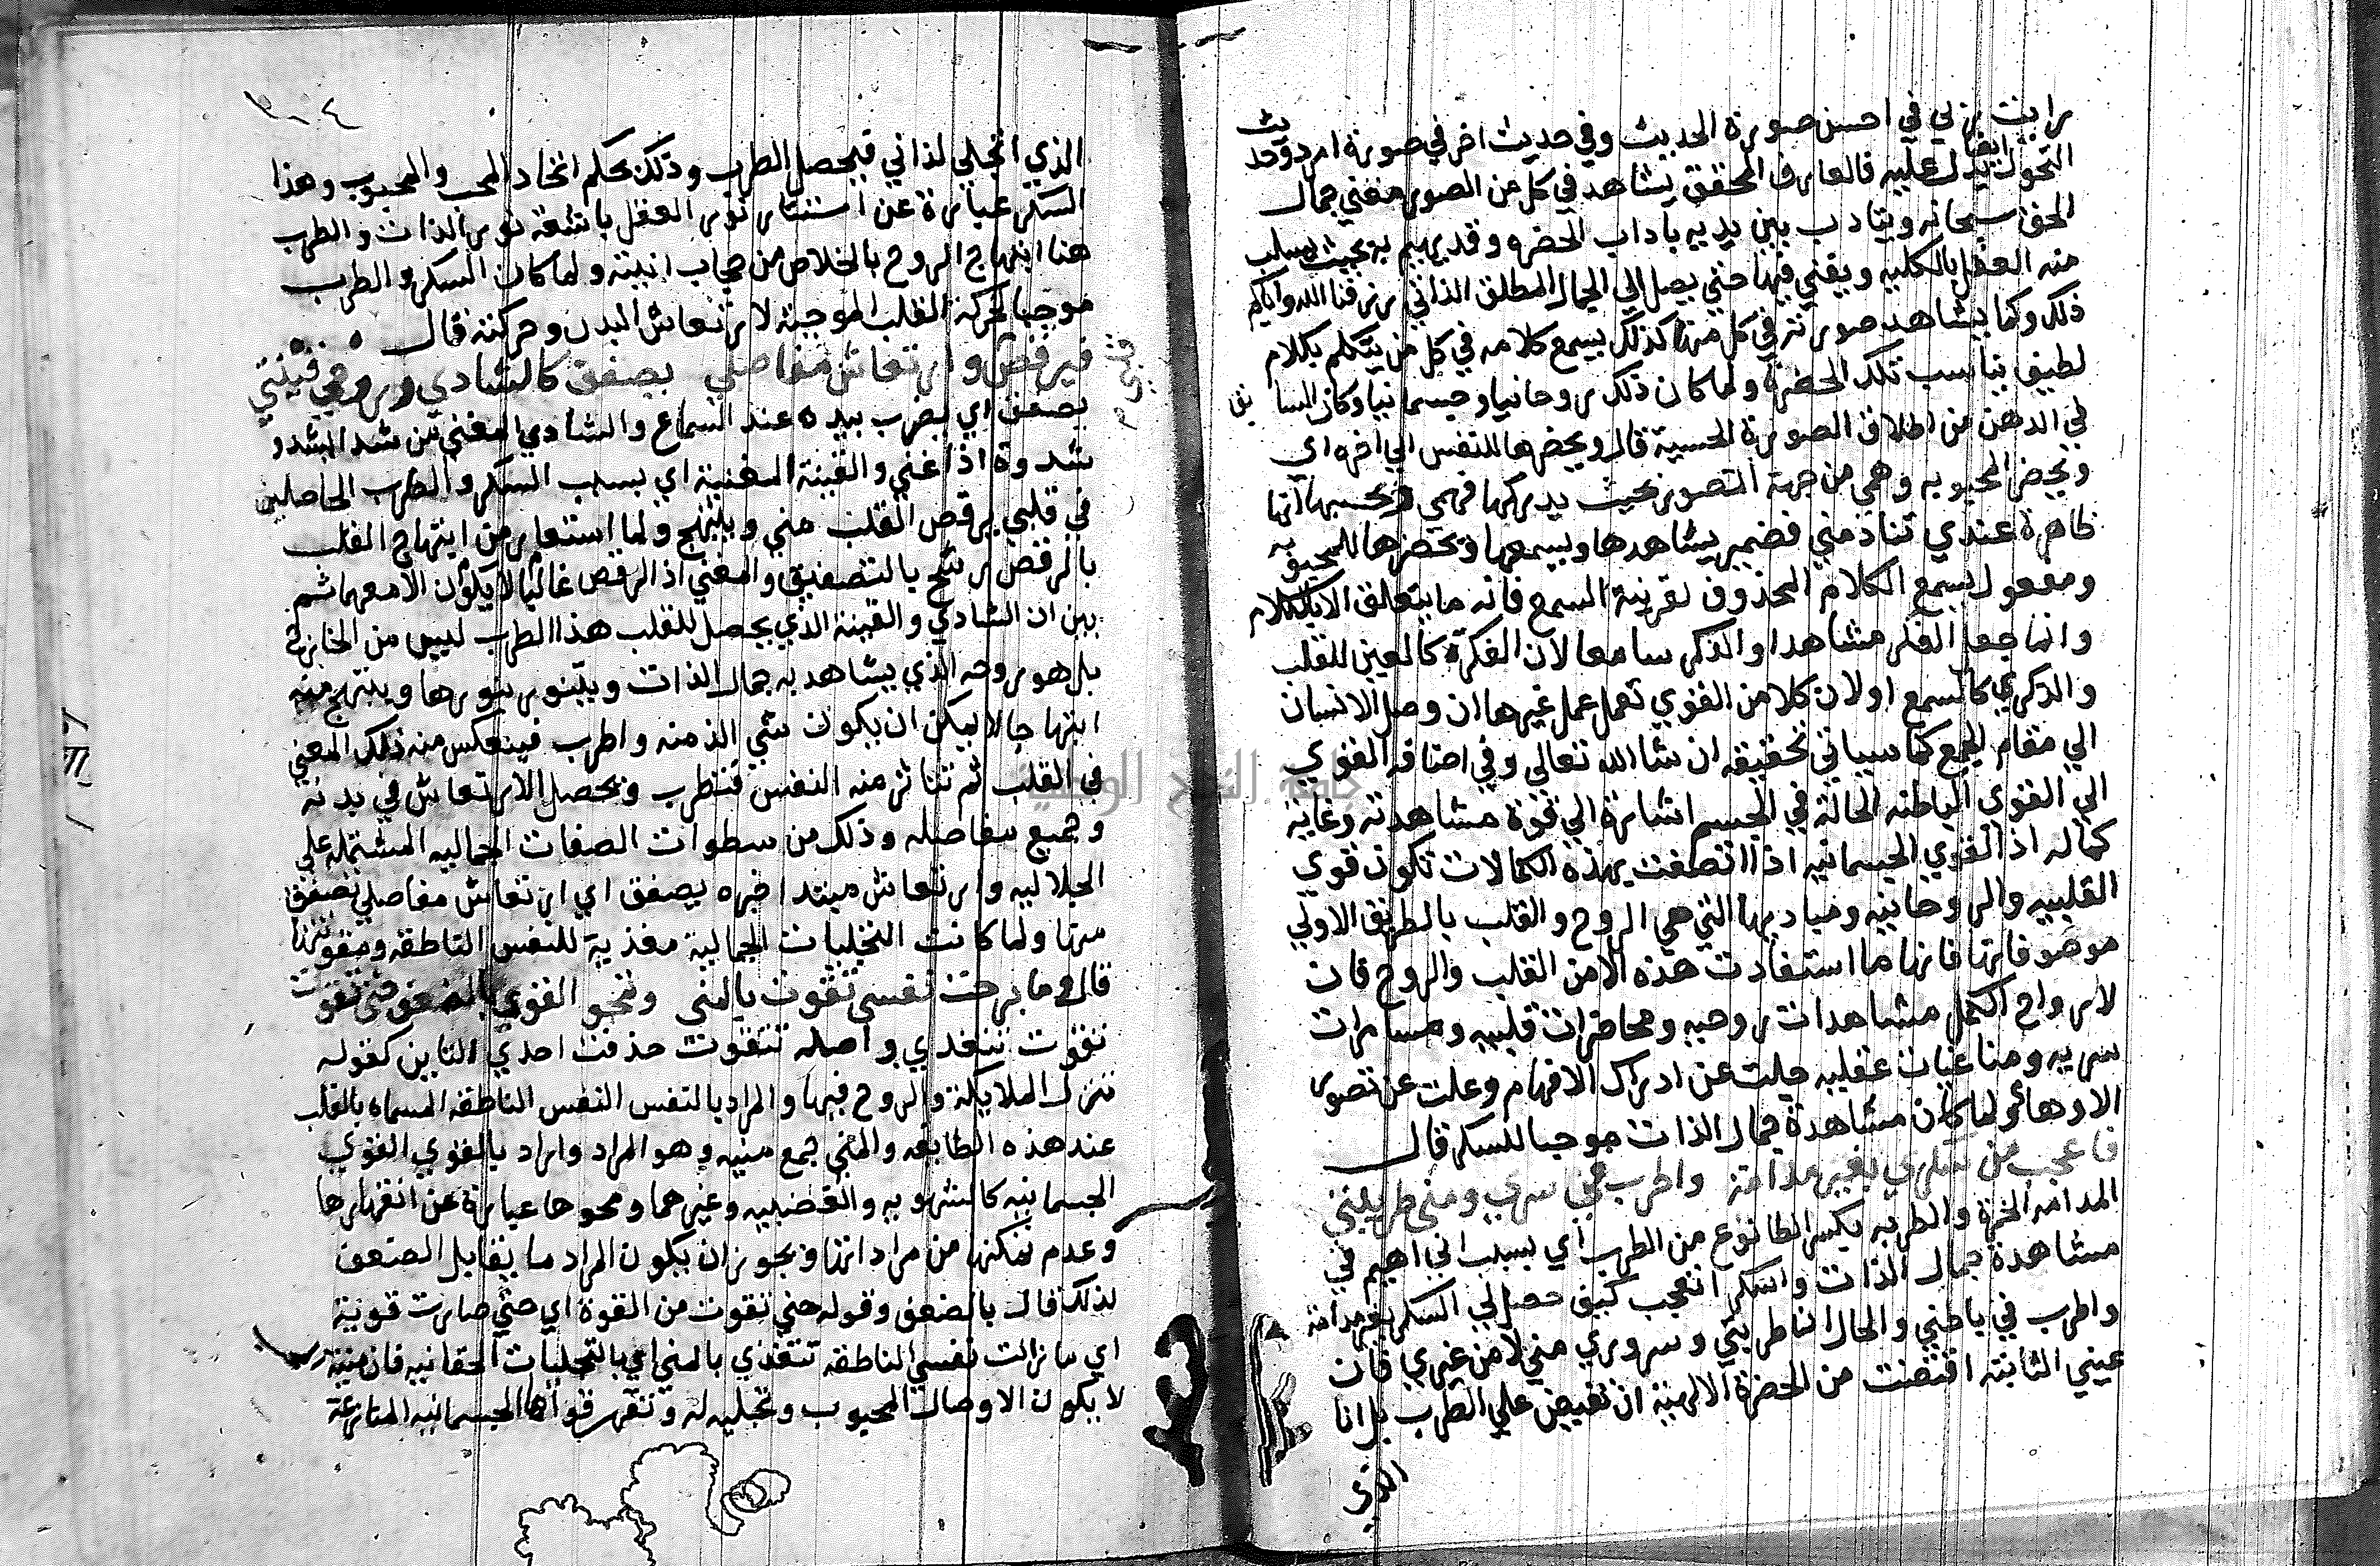 رايت ربي في احسن صورة الحديث وفي حديث اخر في صورة امرد وحديث
التحول ايضا يدل عليه فالعارف المحقق يشاهد في كل من الصور معني جمال
الحق سبحانه ويتادب بين يديه باداب الحضره وقد يهيم به بحيث يسلب
منه العقل بالكليه ويفني فيها حتي يصل الي الجمال المطلق الذاتي رزقنا الله واياكم
ذلك وكما يشاهد صورته في كل مرا كذلك يسمع كلامه في كل من يتكلم بكلام
لطيف يناسب تلك الحضرة ولما كان ذلك روحانيا وجسمانيا وكان السابق
في الدهن من اطلاق الصورة الحسية قال ويحضرها للنفس الي اخره اي
وتحضر المحبوبه وهمي من جهة التصور بحيث يدركها فهمي وتحسبها انها
ظاهرة عندي تنادمني فضمير يشاهدها ويسمعها وتحضرها للمحبوبه
ومفعول يسمع الكلام المحذوف لقرينة السمع فانه ما يتعلق الا بالكلام
وانما جعل الفكر مشاهدا والذكر سامعا لان الفكرة كالعين للقلب
والذكري كالسمع او لان كلا من القوي تعمل عمل غيرها ان وصل الانسان
الي مقام الجمع كما سياتي تحقيقه ان شا الله تعالي وفي اضافة القوي
الي القوي الباطنه الحالة في الجسم اشارة الي قوة مشاهدته وغاية
كماله اذ القوي الجسمانيه اذا اتصفت بهذه الكمالات تكون قوي
القلبيه والروحانيه ومباديها التي هي الروح والقلب بالطريق الاولي
موصوفا بها فانها ما استفادت هذه الا من القلب والروح فان
لارواح الكمل مشاهدات روحيه ومحاضرات قلبيه ومسامرات
سريه ومناغيات عقليه جلت عن ادراك الافهام وعلت عن تصور
الاوهام ولما كان مشاهدة جمال الذات موجبا للسكر قال
فاعجب من سكري بغير مدامة واطرب في سري ومني طربتي
المدامه الخمرة والطربه بكسر الطا نوع من الطرب اي بسبب اني اهيم في
مشاهدة جمال الذات واسكر اتعجب كيف حصل لي السكر بغير مدامة
واطرب في باطني والحال ان طربتي وسروري مني لا من غيري فان
عيني الثابته اقتضت من الحضرة الالهية ان تفيض علي الطرب بل انا
الذي
الذي اتجلي لذاتي فيحصل الطرب وذلك بحكم اتحاد المحب والمحبوب وهذا
السكر عبارة عن استتار نور العقل باشعة نور الذات والطرب
هنا ابتهاج الروح بالخلاص من حجاب انيته ولما كان السكر والطرب
موجبا لحركة القلب الموجبة لارتعاش البدن وحركته قال
فيرقص وارتعاش مفاصلي يصفق كالشادي وروحي قينتي
يصفق اي يضرب بيده عند السماع والشادي المغني من شدا يشدو
شدوة اذا غني والقينة المغنية اي بسبب السكر والطرب الحاصلين
في قلبي يرقص القلب مني ويبتهج ولما استعار من ابتهاج القلب
بالرقص رشح بالتصفيق والمغني اذ الرقص غالبا لا يكون الا معهما ثم
بين ان الشادي والقينة الذي يحصل للقلب هذا الطرب ليس من الخارج
بل هو روحه الذي يشاهد به جمال الذات ويتنور بنورها ويبتهج منه
ابتهاجا لا يمكن ان يكون شي الذ منه واطرب فينعكس منه ذلك المعني
في القلب ثم تتاثر منه النفس فتطرب ويحصل الارتعاش في بدنه
وجميع مفاصله وذلك من سطوات الصفات الجماليه المشتمله علي
الجلاليه وارتعاش مبتدا خبره يصفق اي ارتعاش مفاصلي يصفق
منها ولما كانت التجليات الجمالية مغذية للنفس الناطقه ومقوتها
قال وما برحت نفسي تقوت بالمني وتمحو القوي بالضعف حتي تقوت
تقوت تتغذي واصله تتقوت حذفت احدي التاين كقوله
تنزل الملايكة والروح فيها والمراد بالنفس النفس الناطقه المسماه بالقلب
عند هذه الطايفه والمني جمع منيه وهو المراد واراد بالقوي القوي
الجسمانيه كالشهويه والغضبيه وغيرهما ومحوها عبارة عن انقهارها
وعدم تمكنها من مراداتها ويجوز ان يكون المراد ما يقابل الضعف
لذلك قال بالضعف وقوله حتي تقوت من القوة اي حتي صارت قوية
اي ما زالت نفسي الناطقه تتغذي بالمني اي بالتجليات الحقانيه فان منيته
لا يكون الا وصال المحبوب وتجليه له وتقهر قواها الجسمانيه المنازعة